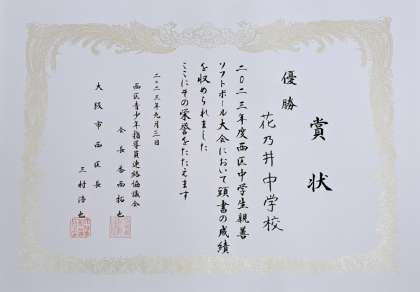 賞状
優勝
花乃井中学校
二〇二三年度西区中学生親善
ソフトボール大会において頭書の成績
を収められました
ここにその栄誉をたたえます
二〇二三年九月三日
西区青少年指導員連絡協議会
会長 香西拓也
大阪市西区長
三村浩也